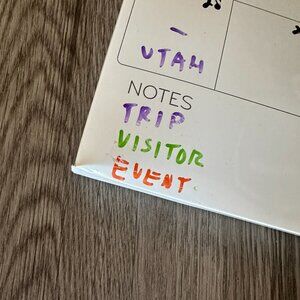 -
UTAH
NOTES
TRIP
VISITOR
EVENT